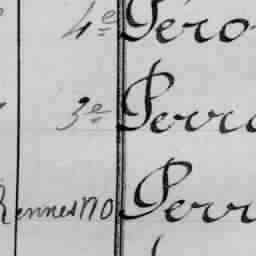 4e Péro
3e Perr
Rennes no Perr